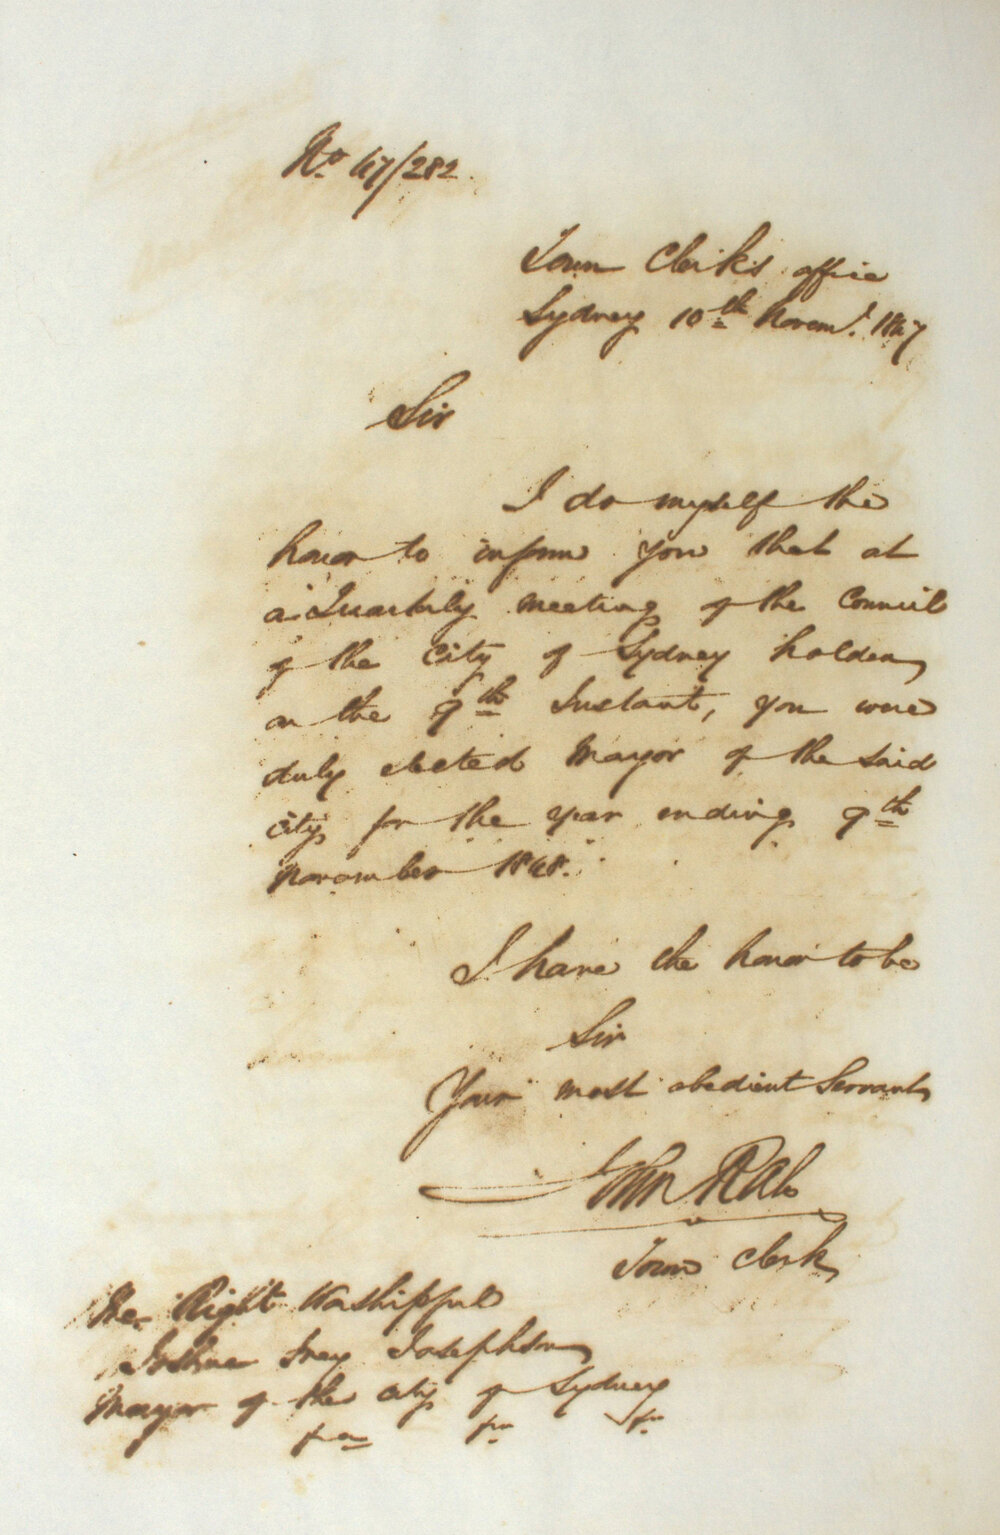 No 47/282.
Town Clerk's office
Sydney 10th Novemr. 1847
Sir
I do myself the
honor to inform you that at
a Quarterly meeting of the Council
of the City of Sydney holden
on the 9th Instant, you were
duly elected Mayor of the said
City for the year ending 9th
November 1848.
I have the honor to be
Sir
Your most obedient Servant
John Rae
Town Clerk
The Right Worshipful
Joshua Frey Josephson
Mayor of the City of Sydney